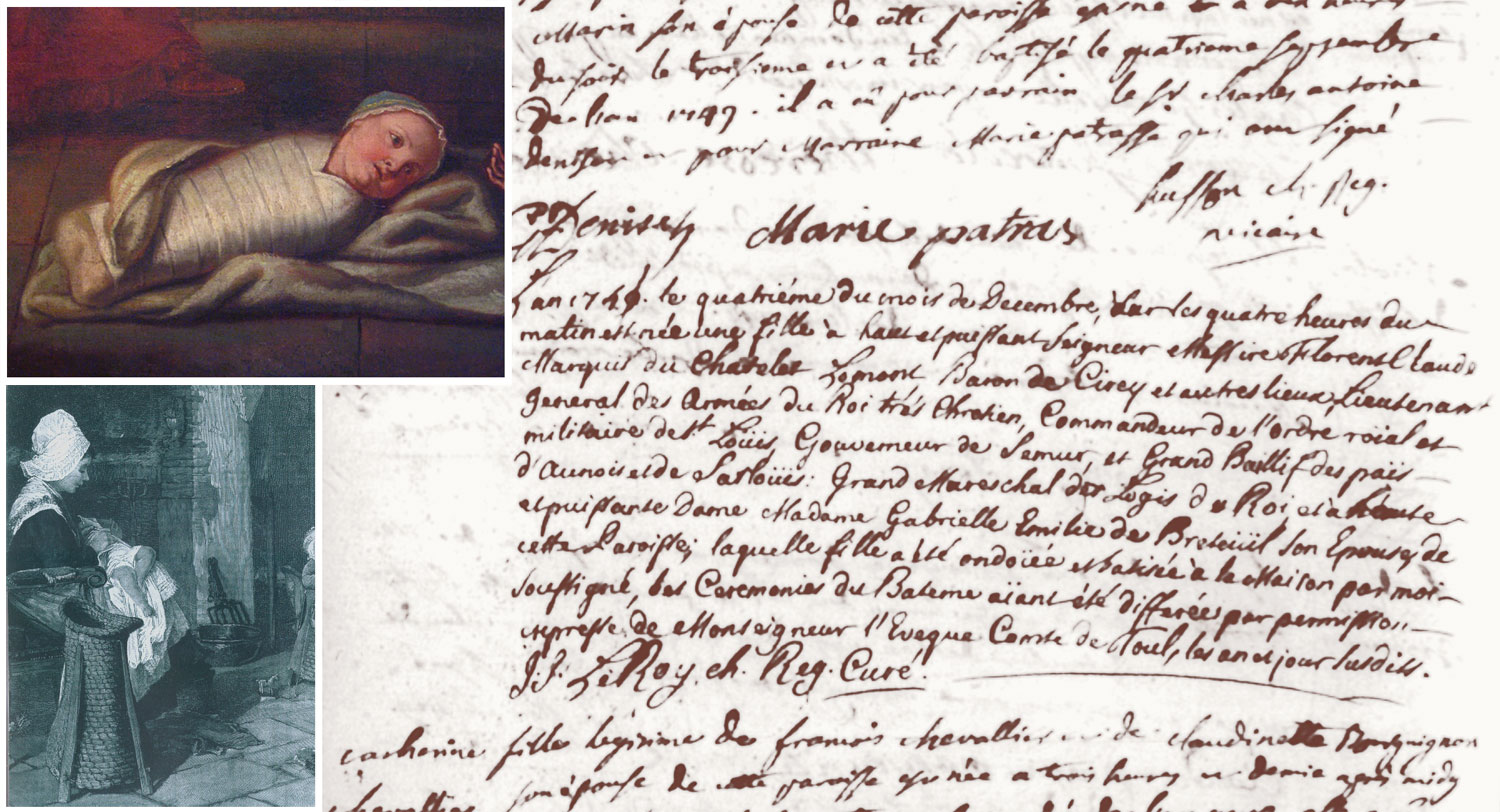 Marin son épouse de cette paroisse
du soir le troisieme et a été baptisé le quatrieme septembre
De l'an 1749. il a eu pour parrain le Sr charles antoine
et pour Marraine Marie patrasse qui ont signé
ch. Reg.
vicaire
Marie patras
L'an 1749. le quatriéme du mois de Decembre, sur les quatre heures du
matin est née une fille à haut et puissant Seigneur Messire Florent Claude
Marquis du Chatelet Lomont Baron de Cirey et autres lieux, Lieutenant
general des Armées du Roi trés Chretien, Commandeur de l'ordre roïal et
militaire de St Loüis, Gouverneur de Semur, et Grand Baillif des païs
d'Aunois et de Sarloüis: Grand Mareschal des Logis du Roi et à haute
et puissante Dame Madame Gabrielle Emilie de Breteüil son Epouse, de
cette Paroisse; laquelle fille a été ondoïée et batisée à la Maison par moi
soussigné, les Ceremonies du Bateme aïant été differées par permission
expresse de Monseigneur l'Eveque Comte de Toul, les an et jour susdits.
J. J. LeRoy, ch. Reg. Curé.
catherine fille légitime de francois chevallier et de claudinette Bourguignon
son épouse de cette paroisse est née a trois heures et demie après midy